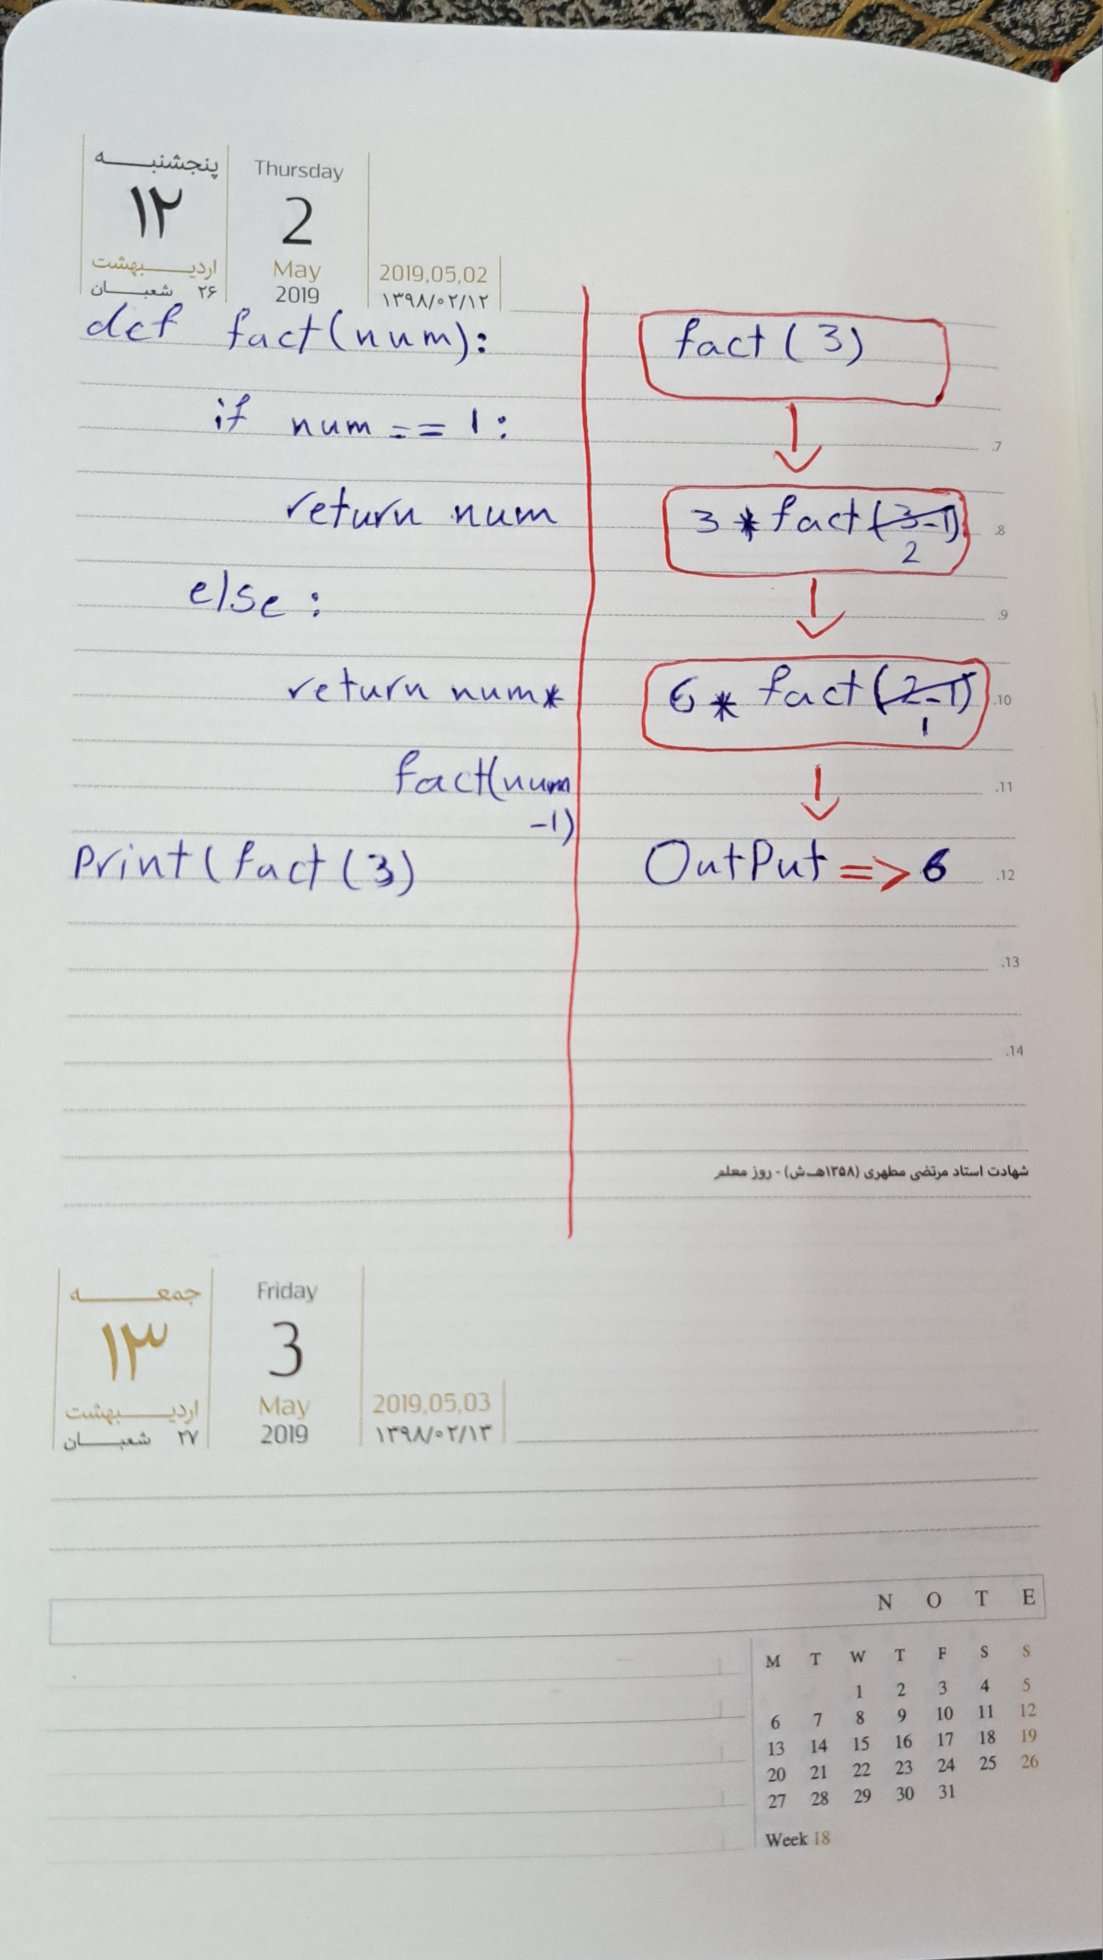 پنجشنبه
۱۲
اردیبهشت
۲۶ شعبان
Thursday
2
May
2019
2019,05,02
۱۳۹۸/۰۲/۱۲
def fact(num):
if num == 1:
return num
else:
return num*
fact(num
-1)
Print(fact(3)
fact(3)
3 * fact(3-1)
2
6 * fact(2-1)
1
OutPut => 6
.7
.8
.9
.10
.11
.12
.13
.14
شهادت استاد مرتضی مطهری (۱۳۵۸هـ‌ش) - روز معلم
جمعه
۱۳
اردیبهشت
۲۷ شعبان
Friday
3
May
2019
2019,05,03
۱۳۹۸/۰۲/۱۳
N O T E
M T W T F S S
1 2 3 4 5
6 7 8 9 10 11 12
13 14 15 16 17 18 19
20 21 22 23 24 25 26
27 28 29 30 31
Week 18